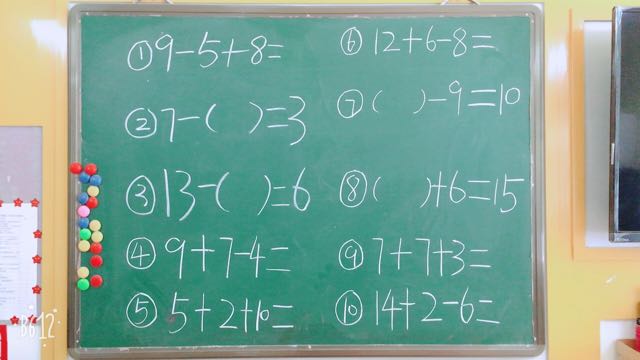 ①9-5+8=
②7-( )=3
③13-( )=6
④9+7-4=
⑤5+2+10=
⑥12+6-8=
⑦( )-9=10
⑧( )+6=15
⑨7+7+3=
⑩14+2-6=
B612